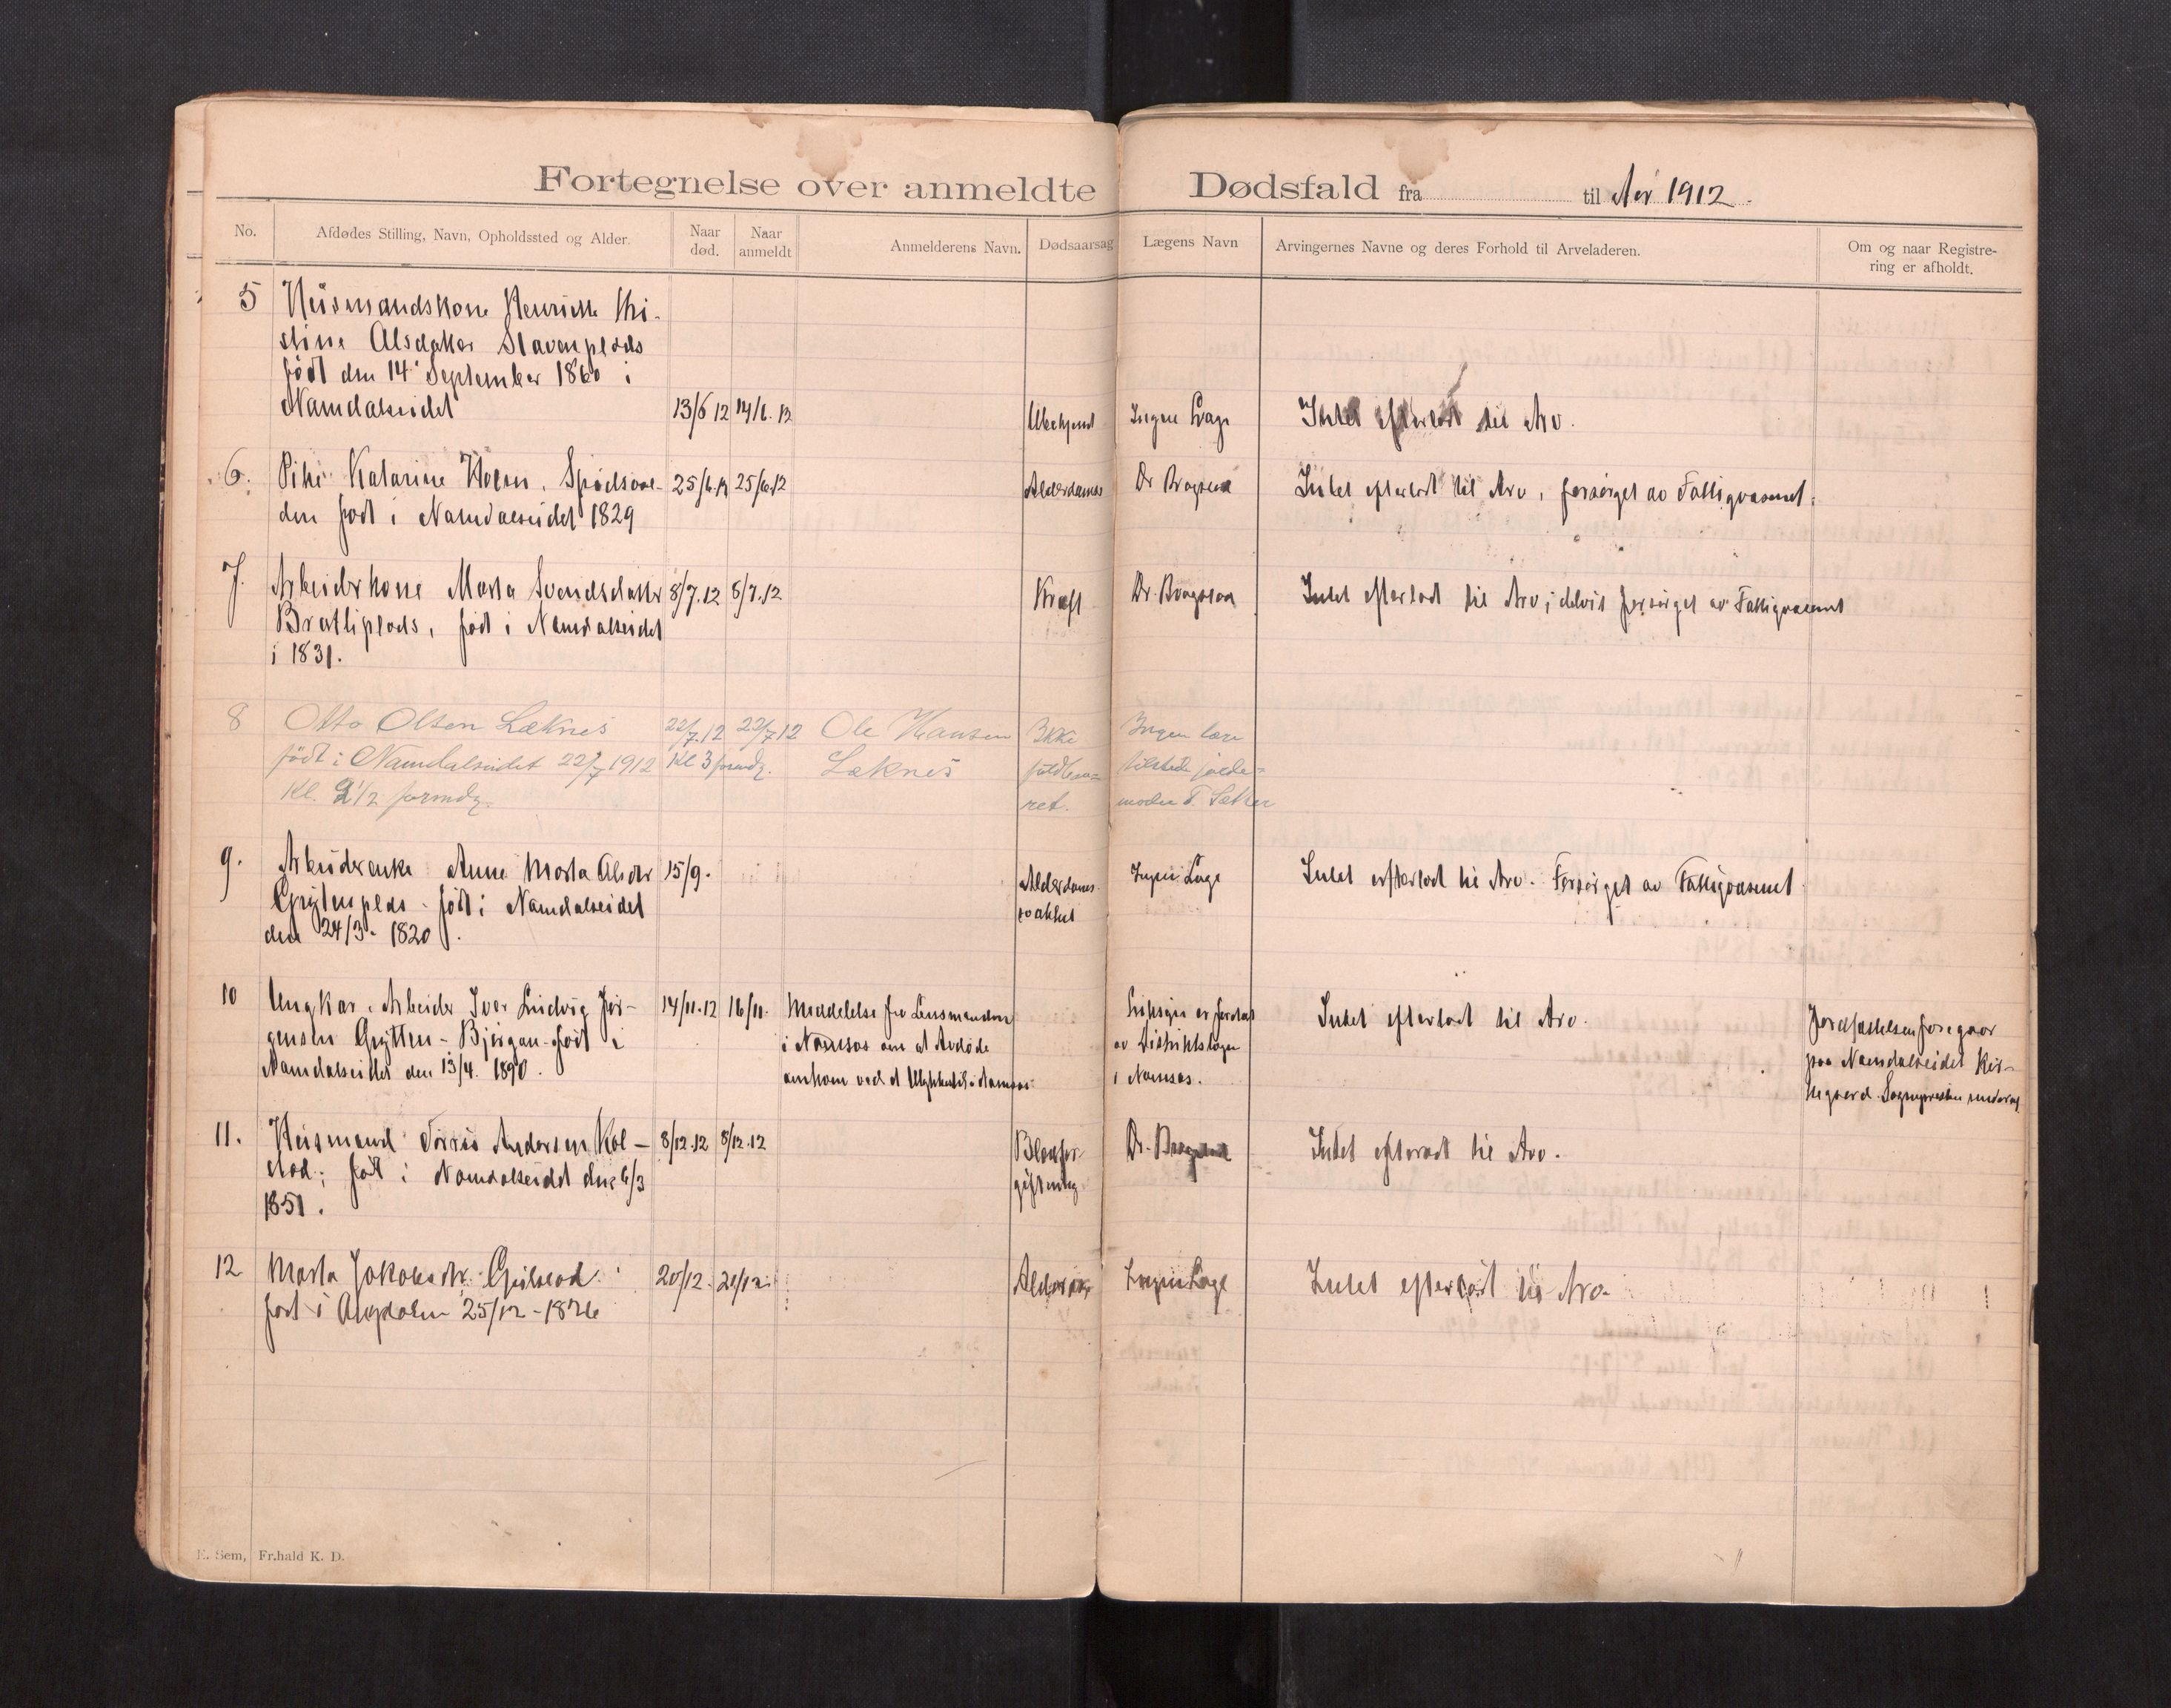 Fortegnelse over anmeldte Dødsfald fra til Aar 1912.
No. Afdødes Stilling, Navn, Opholdssted og Alder. Naar død. Naar anmeldt Anmelderens Navn. Dødsaarsag Lægens Navn Arvingernes Navne og deres Forhold til Arveladeren. Om og naar Registrering er afholdt.
5 Husmandskone Henrikke Kri-
stine Alsdatter Slavenplads
født den 14 September 1860 i
Namdalseidet 13/6 12 14/6. 12 Ubekjend Ingen Læge Intet efterladt til Arv.
6. Pike Katarine Hoem. Spedsoe- 25/6.12 25/6.12 Alderdoms Dr Intet efterladt til Arv, forsørget av Fattigvæsenet.
den født i Namdalseidet 1829
7. Arbeiderkone Marta Svendsdatter 8/7.12 8/7.12 Kræft Dr. Intet efterladt til Arv; delvis forsørget av Fattigvæsenet
Brattliplads, født i Namdalseidet
i 1831.
8 Otto Olsen Læknes 22/7.12 22/7 12 Ole Hansen Ikke Ingen læge
født i Namdalseidet 22/7 1912 Kl 3 formdg. Læknes fuldbaa= tilstede jorde=
Kl. 2 1/2 formdg. ret. moder T. Sæther
9. Arbeiderenke Anne Marta Alsdtr 15/9. Alderdoms- Ingen Læge Intet efterlod til Arv. Forsørget av Fattigvæsenet
Grytenplds født i Namdalseidet svakhet
den 24/3- 1820.
10 Ungkar, Arbeider Iver Ludvig Jør- 14/11.12 16/11. Meddelelse fra Lensmanden Liksyn er foretat Intet efterladt til Arv. Jordfæstelsen foregaar
gensen Grytten - Bjørgan født i i Namsos om at Avdøde av Distriktslægen paa Namdalseidet Kir-
Namdalseidet den 13/4. 1890. omkom ved et Ulykkestil. i Namsos. i Namsos. kegaard. Sognepresten underret
11. Husmand Torris Andersen Kal- 8/12.12 8/12.12 Blodfor- Dr. Intet efterladt til Arv.
stad; født i Namdalseidet den 6/3 giftning
1851.
12 Marta Jakobsdtr. 20/12. 21/12. Ingen Læge Intet efterladt til Arv.
født i 25/12 - 1826
E. Sem, Fr.hald K. D.